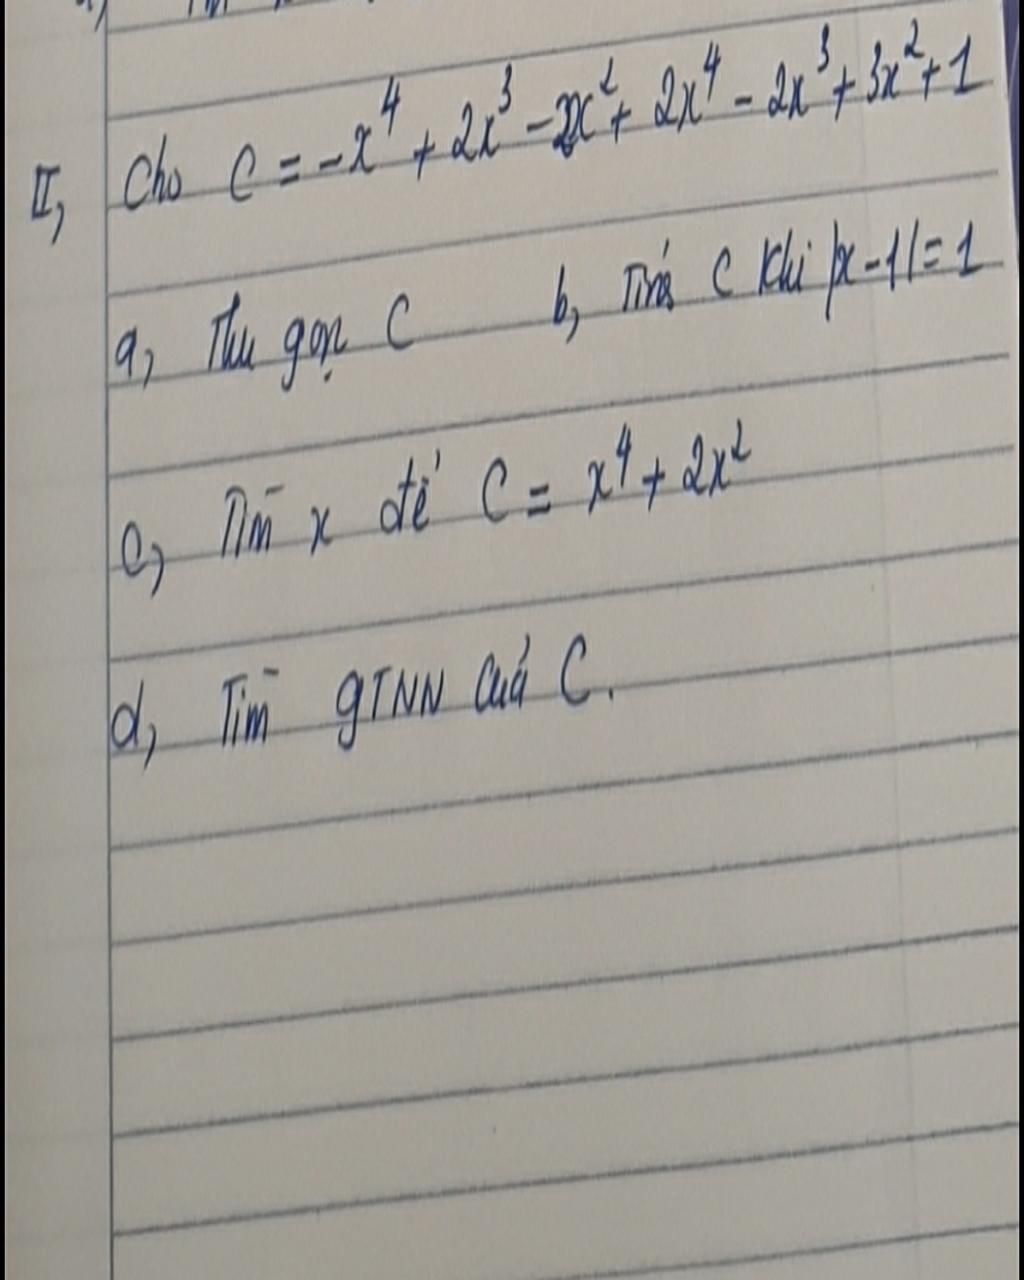 II, Cho C = -x⁴ + 2x³ - 2x² + 2x⁴ - 2x³ + 3x² + 1
a, Thu gọn C b, Tính C khi |x-1| = 1
c, Tìm x để C = x⁴ + 2x²
d, Tìm GTNN của C.